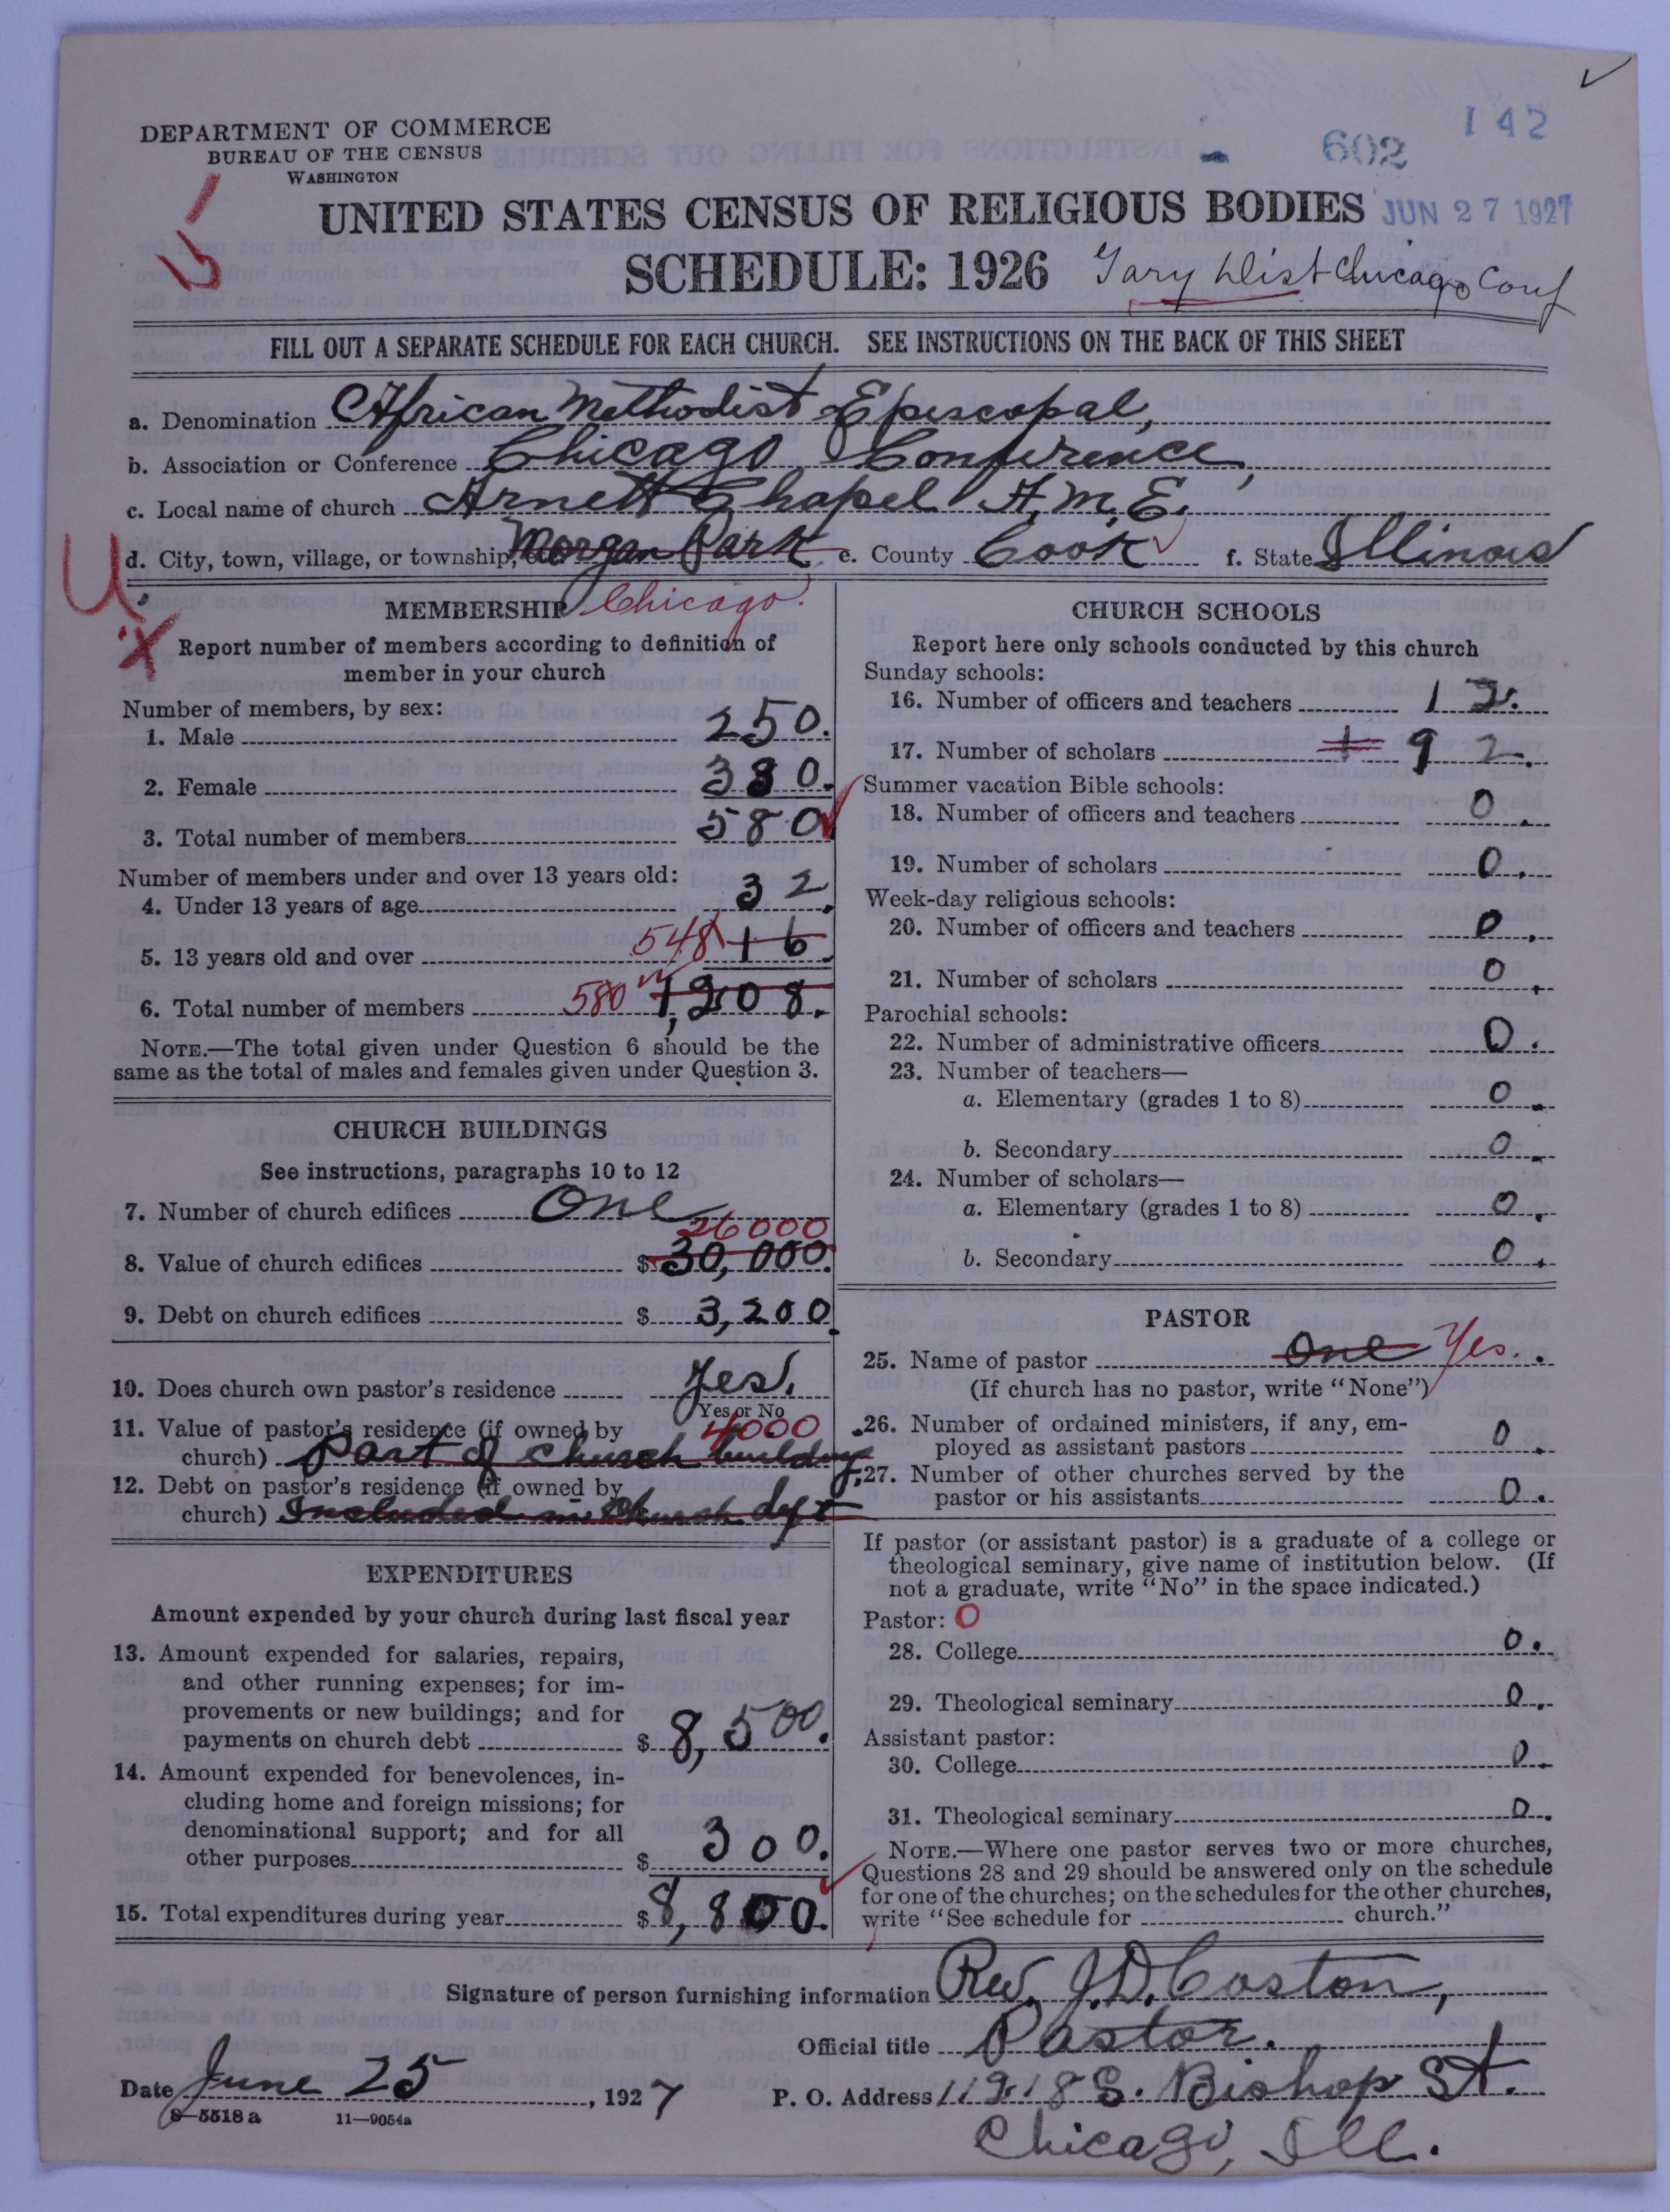 142
602
DEPARTMENT OF COMMERCE
BUREAU OF THE CENSUS
WASHINGTON
JUN 27 1927
UNITED STATES CENSUS OF RELIGIOUS BODIES
SCHEDULE: 1926
Gary Dist Chicago Conf
FILL OUT A SEPARATE SCHEDULE FOR EACH CHURCH. SEE INSTRUCTIONS ON THE BACK OF THIS SHEET
a. Denomination African Methodist Episcopal,
b. Association or Conference Chicago Conference,
c. Local name of church Arnett Chapel A.M.E.
d. City, town, village, or township, etc. Morgan Park e. County Cook f. State Illinois
U
X
MEMBERSHIP Chicago.
Report number of members according to definition of
member in your church
Number of members, by sex:
1. Male 250.
2. Female 330.
3. Total number of members 580
Number of members under and over 13 years old:
4. Under 13 years of age 32.
5. 13 years old and over 548 16.
6. Total number of members 580 1,208.
NOTE.—The total given under Question 6 should be the
same as the total of males and females given under Question 3.
CHURCH BUILDINGS
See instructions, paragraphs 10 to 12
7. Number of church edifices One
26000
8. Value of church edifices $ 30,000.
9. Debt on church edifices $ 3,200.
10. Does church own pastor's residence Yes.
Yes or No
11. Value of pastor's residence (if owned by 4000
church) Part of Church building,
12. Debt on pastor's residence (if owned by
church) Included in Church
EXPENDITURES
Amount expended by your church during last fiscal year
13. Amount expended for salaries, repairs,
and other running expenses; for im-
provements or new buildings; and for
payments on church debt $ 8,500.
14. Amount expended for benevolences, in-
cluding home and foreign missions; for
denominational support; and for all
other purposes $ 300.
15. Total expenditures during year $ 8,800.
CHURCH SCHOOLS
Report here only schools conducted by this church
Sunday schools:
16. Number of officers and teachers 12.
17. Number of scholars 1 92.
Summer vacation Bible schools:
18. Number of officers and teachers 0.
19. Number of scholars 0.
Week-day religious schools:
20. Number of officers and teachers 0.
21. Number of scholars 0.
Parochial schools:
22. Number of administrative officers 0.
23. Number of teachers—
a. Elementary (grades 1 to 8) 0.
b. Secondary 0.
24. Number of scholars—
a. Elementary (grades 1 to 8) 0.
b. Secondary 0.
PASTOR
25. Name of pastor One Yes.
(If church has no pastor, write "None")
26. Number of ordained ministers, if any, em-
ployed as assistant pastors 0.
27. Number of other churches served by the
pastor or his assistants 0.
If pastor (or assistant pastor) is a graduate of a college or
theological seminary, give name of institution below. (If
not a graduate, write "No" in the space indicated.)
Pastor: 0
28. College 0.
29. Theological seminary 0.
Assistant pastor:
30. College 0.
31. Theological seminary 0.
NOTE.—Where one pastor serves two or more churches,
Questions 28 and 29 should be answered only on the schedule
for one of the churches; on the schedules for the other churches,
write "See schedule for church."
Signature of person furnishing information Rev. J.D. Coston,
Official title Pastor.
Date June 25, 1927 P. O. Address 11218 S. Bishop St.
8—5518a 11—9054a
Chicago, Ill.